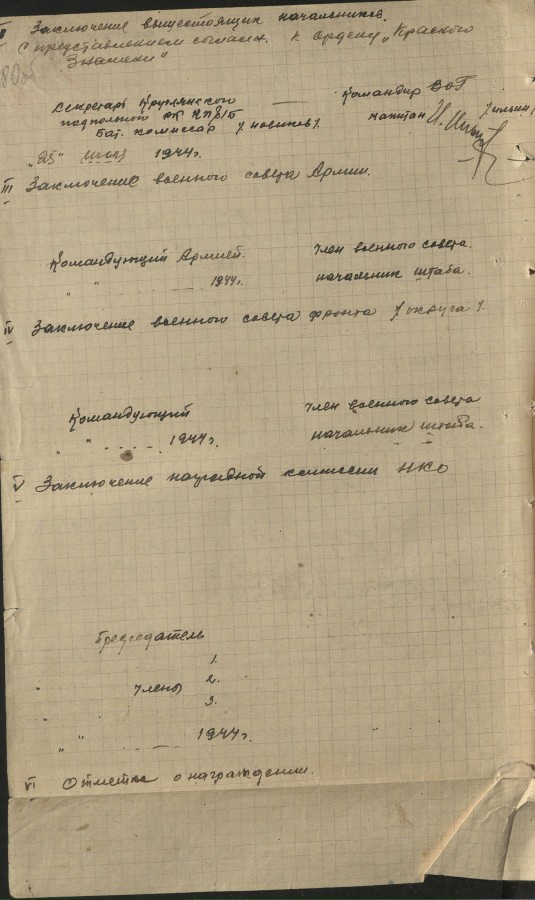 II Заключение вышестоящих начальников.
С представлением согласен. к ордену „Красного
Знамени"
Секретарь Круглянского
подпольного РК КП/б/Б
бат. комиссар / новиков /.
Командир ВОГ
капитан
„25" 1944г.
III Заключение военного совета Армии.
Командующий Армией.
Член военного совета.
" " 1944г.
начальник штаба.
IV Заключение военного совета фронта / округа /.
Командующий
Член военного совета
" " 1944г.
начальник штаба.
V Заключение наградной комиссии НКО
Председатель
1.
Члены 2.
3.
" " 1944г.
VI Отметка о награждении.